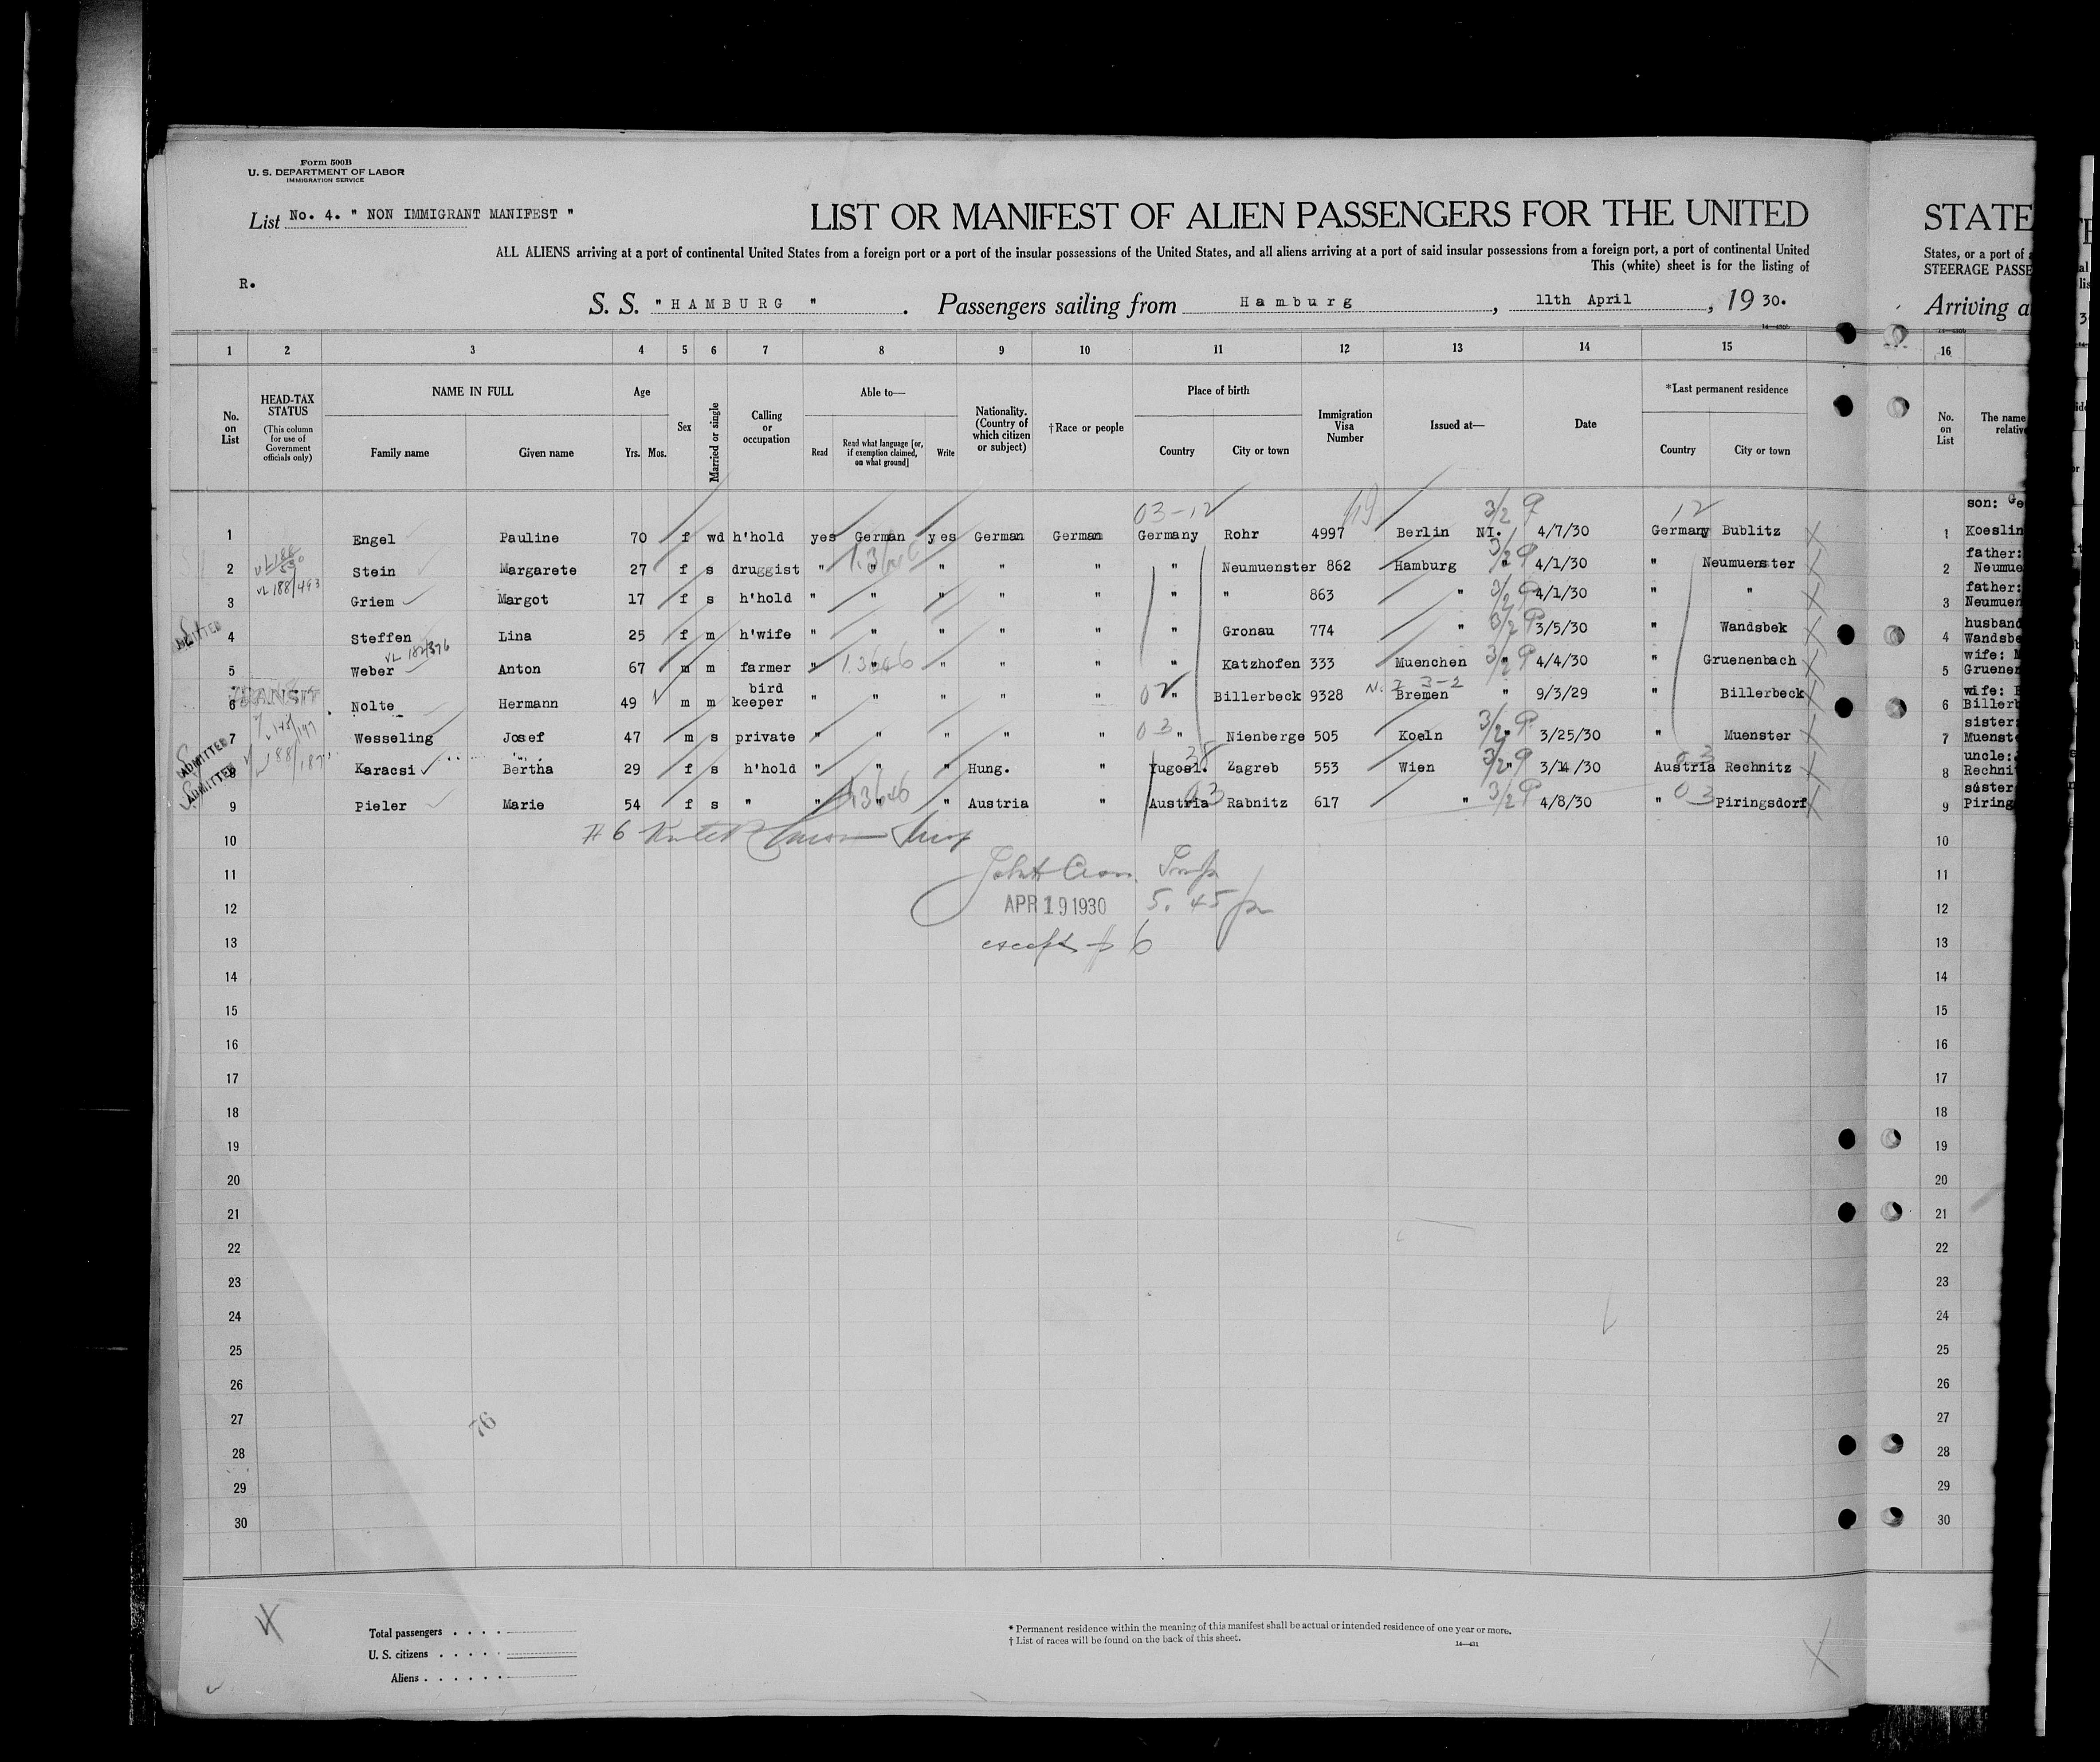 Form 500B
U. S. DEPARTMENT OF LABOR
IMMIGRATION SERVICE
List No. 4. " NON IMMIGRANT MANIFEST "
LIST OR MANIFEST OF ALIEN PASSENGERS FOR THE UNITED
ALL ALIENS arriving at a port of continental United States from a foreign port or a port of the insular possessions of the United States, and all aliens arriving at a port of said insular possessions from a foreign port, a port of continental United
This (white) sheet is for the listing of
R.
S. S. " H A M B U R G " . Passengers sailing from H a m b u r g , 11th April , 19 30.
1 2 3 4 5 6 7 8 9 10 11 12 13 14 15
No. on List
HEAD-TAX STATUS (This column for use of Government officials only)
NAME IN FULL
Family name Given name
Age
Yrs. Mos.
Sex
Married or single
Calling or occupation
Able to—
Read Read what language [or, if exemption claimed, on what ground] Write
Nationality. (Country of which citizen or subject)
†Race or people
Place of birth
Country City or town
Immigration Visa Number
Issued at—
Date
*Last permanent residence
Country City or town
03-12 19 3/2 P 12
1 Engel Pauline 70 f wd h'hold yes German yes German German Germany Rohr 4997 Berlin NI. 4/7/30 Germany Bublitz
2 Stein Margarete 27 f s druggist " " " " " " Neumuenster 862 Hamburg " 4/1/30 " Neumuenster
VL 188/493
3 Griem Margot 17 f s h'hold " " " " " " " 863 " 4/1/30 " "
ADMITTED
4 Steffen Lina 25 f m h'wife " " " " " " Gronau 774 " 3/5/30 " Wandsbek
VL 182/376
5 Weber Anton 67 m m farmer " " " " " " Katzhofen 333 Muenchen " 4/4/30 " Gruenenbach
TRANSIT
6 Nolte Hermann 49 m m bird keeper " " " " " 02 " Billerbeck 9328 Bremen " 9/3/29 " Billerbeck
7 Wesseling Josef 47 m s private " " " " " 03 " Nienberge 505 Koeln " 3/25/30 " Muenster
ADMITTED
8 Karacsi Bertha 29 f s h'hold " " " Hung. " Yugosl. Zagreb 553 Wien " 3/14/30 Austria Rechnitz
ADMITTED
9 Pieler Marie 54 f s " " " " Austria " Austria Rabnitz 617 " 4/8/30 " Piringsdorf
10
11
APR 19 1930 5. 45 p
12
except # 6
13
14
15
16
17
18
19
20
21
22
23
24
25
26
27
76
28
29
30
Total passengers . . . .
U. S. citizens . . . . .
Aliens . . . . . .
* Permanent residence within the meaning of this manifest shall be actual or intended residence of one year or more.
† List of races will be found on the back of this sheet.
14—431
STATE
States, or a port of
STEERAGE PASSE
Arriving a
16
No. on List
The name
relative
son: Ge
1 Koeslin
father:
2 Neumue
father:
3 Neumuen
husband
4 Wandsbe
wife:
5 Gruenen
wife:
6 Billerb
sister:
7 Muenste
uncle:
8 Rechnit
sister
9 Piring
10
11
12
13
14
15
16
17
18
19
20
21
22
23
24
25
26
27
28
29
30